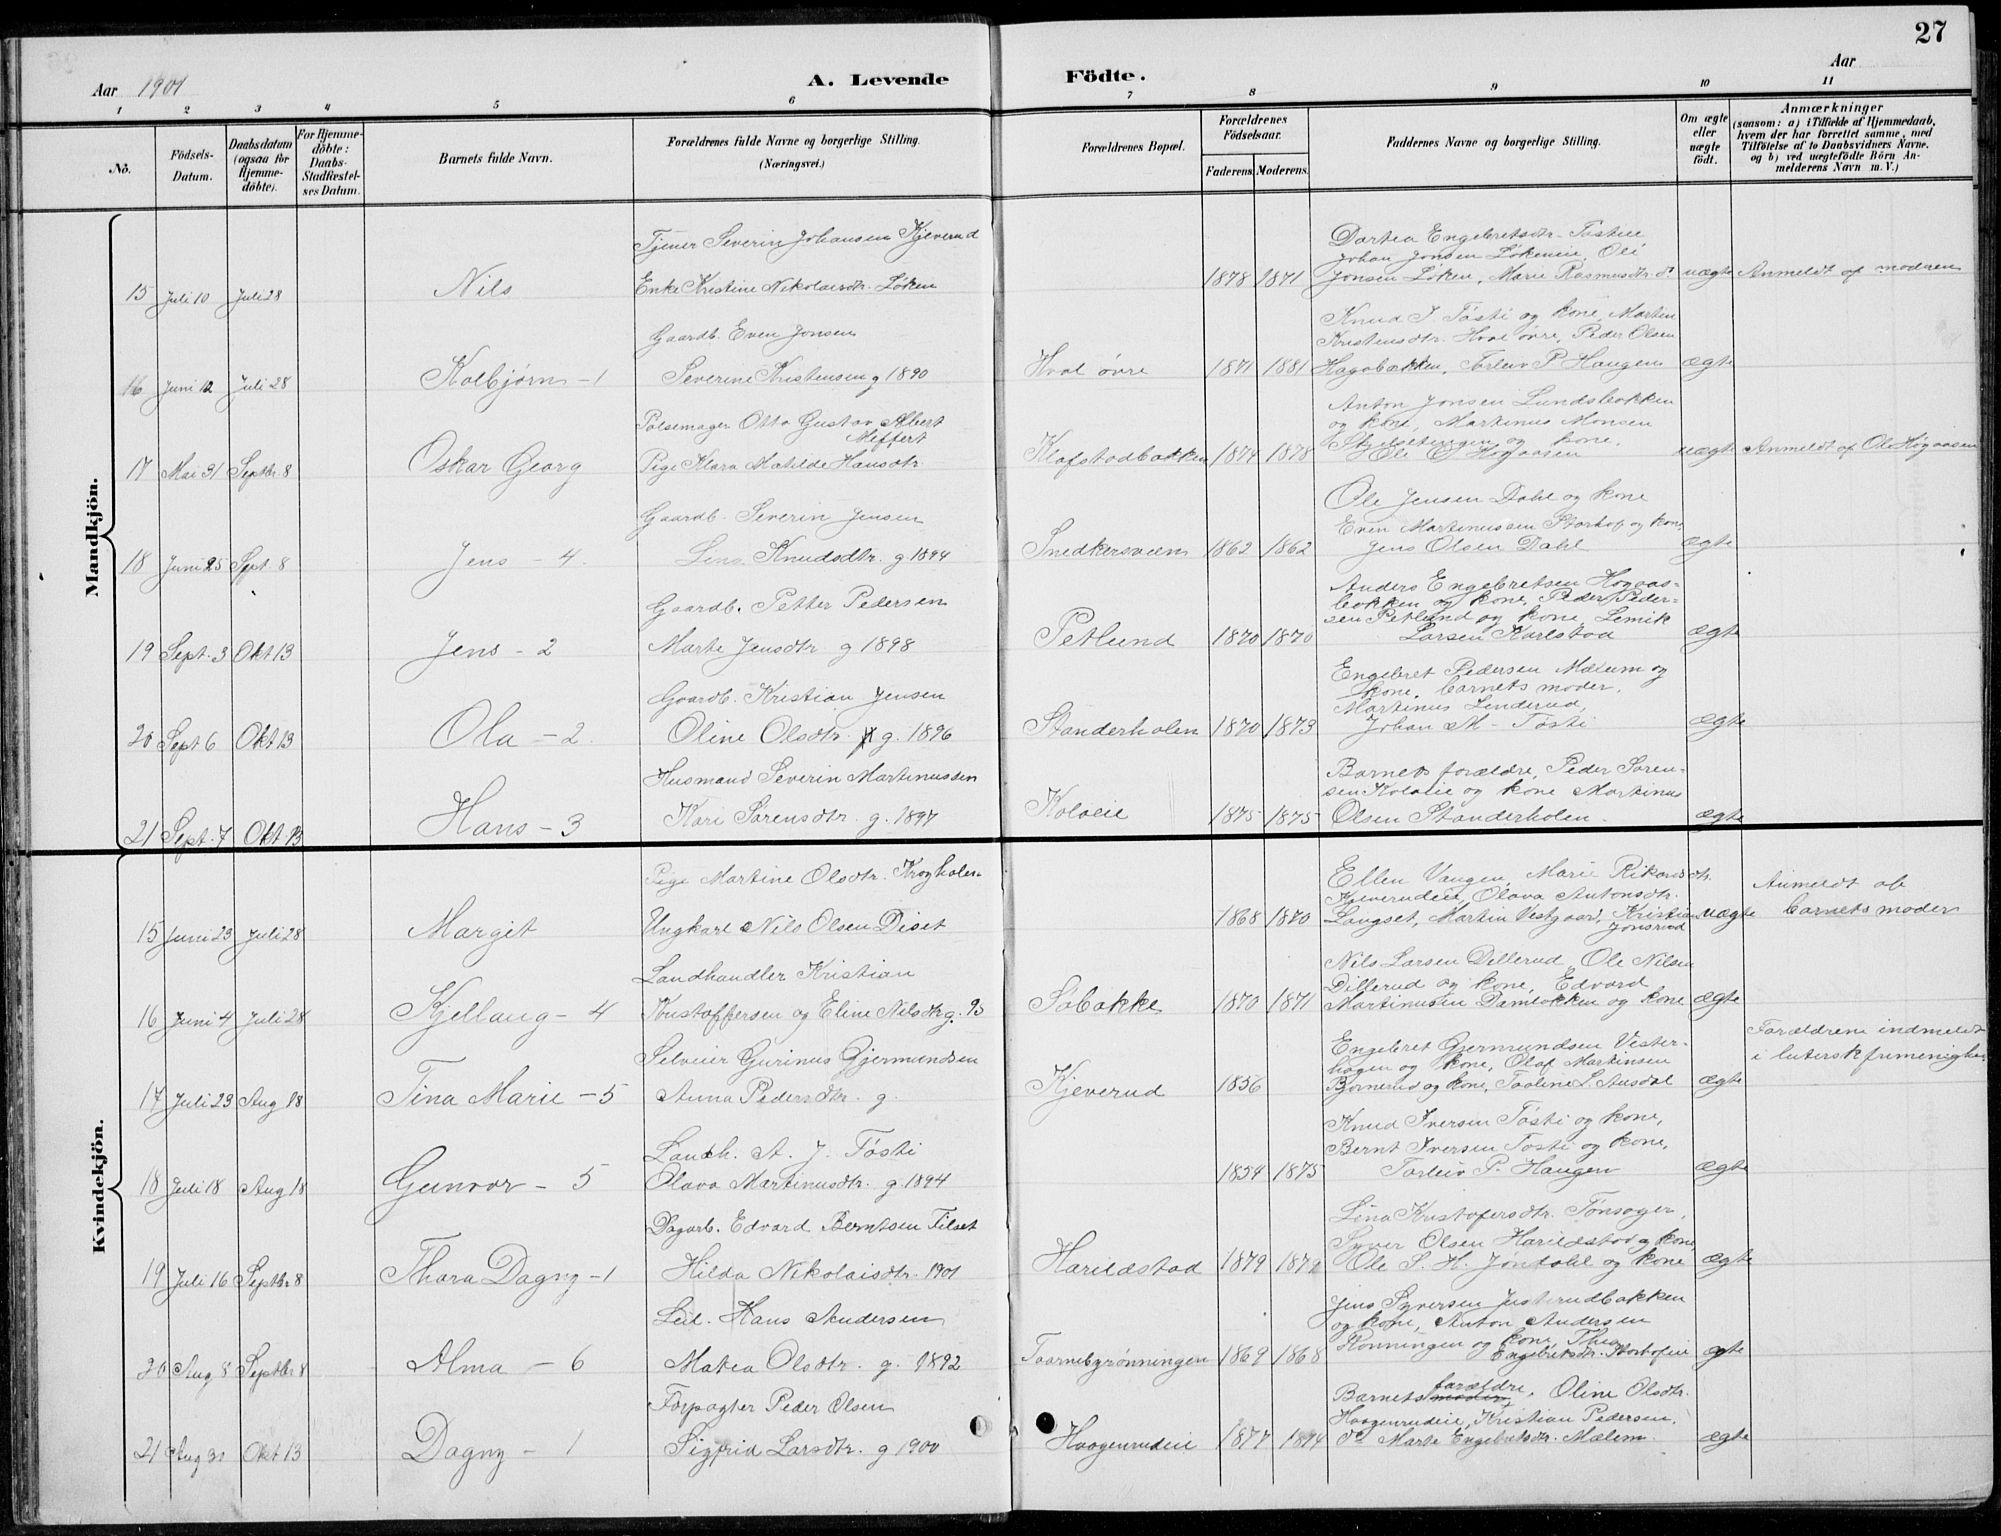 27
Aar 1901
A. Levende Födte.
Aar
1 2 3 4 5 6 7 8 9 10 11
No.
Födsels-Datum.
Daabsdatum (ogsaa for Hjemme-döbte).
For Hjemme-döbte: Daabs-Stadfæstel-ses Datum.
Barnets fulde Navn.
Forældrenes fulde Navne og borgerlige Stilling. (Næringsvei.)
Forældrenes Bopæl.
Forældrenes Födselsaar.
Faderens. Moderens.
Faddernes Navne og borgerlige Stilling.
Om ægte eller uægte födt.
Anmærkninger
(saasom: a) i Tilfælde af Hjemmedaab, hvem der har forrettet samme, med Tilföielse af to Daabsvidners Navne. og b) ved uægtefödte Börn An-melderens Navn m. V.)
Mandkjön.
15 Juli 10 Juli 28 Nils
Tjener Severin Johansen Kjeverud
Enke Kristine Nikolaisdtr. Løken
1878 1871
Dortea Engebretsdtr. Tøstie
Johan Jonsen Løkeneie, Ole
Jonsen Løken, Marie Rasmusdtr. do
uægte Anmeldt af modren
16 Juni 12 Juli 28 Kolbjørn - 1
Gaardb. Even Jonsen
Severine Kristensen g 1890
Hvol øvre 1871 1881
Knud I Tøsti og kone, Martin
Kristensdtr. Hvol øvre, Peder Olsen
Hagabakken, Torleiv P Haugen
ægte
17 Mai 31 Septbr 8 Oskar Georg
Pølsemager Otto Gustav Albert
Meffert
Pige Klara Matilde Hansdtr.
Klofstadbakken 1874 1878
Anton Jonsen Lundsbakken
og kone, Martinus Monsen
og kone,
Ole Høgaasen
uægte Anmeldt af Ole Høgaasen
18 Juni 25 Sept. 8 Jens - 4.
Gaardb. Severin Jensen
Lina Knudsdtr. g 1894
Snedkersveen 1862 1862
Ole Jensen Dahl og kone
Even Martinussen Storhof og kone
Jens Olsen Dahl
ægte
19 Sept. 3 Okt 13 Jens - 2
Gaardb. Petter Pedersen
Marte Jensdtr g 1898
Petlund 1870 1870
Anders Engebretsen Høgaas-
bakken og kone, Peder Peder-
sen Petlund og kone, Lemik
Larsen Karlstad
ægte
20 Sept 6 Okt 13 Ola - 2.
Gaardb. Kristian Jensen
Oline Olsdtr. g. 1896
Standerholen 1870 1873
Engebret Pedersen Mælum og
kone, barnets moder,
Martinus Linderud,
Johan M- Tøsti
ægte
21 Sept. 7 Okt 13 Hans - 3
Husmand Severin Martinussen
Kari Sørensdtr. g. 1897
Koloeie 1875 1875
Barnets forældre, Peder Søren-
sen Koloeie og kone Martinus
Olsen Standerholen.
ægte
Kvindekjön.
15 Juni 23 Juli 28 Margit
Pige Martine Olsdtr. Krogholen
Ungkarl Nils Olsen Diset
1868 1870
Ellen Vangen, Marie Rikardsdtr.
Kjeverudeie, Olava Antonsdtr.
Lingset, Martin Vestgaard, Kristian
Jonsrud
uægte
Anmeldt af
barnets moder
16 Juni 4 Juli 28 Kjellaug - 4
Landhandler Kristian
Kristoffersen og Eline Nilsdtr g. 93
Søbakke 1870 1871
Nils Larsen Dillerud, Ole Nilsen
Dillerud og kone, Edvard
Martinusen Dambakken og kone
ægte
17 Juli 23 Aug 18 Tina Marie - 5
Selveier Gurinus Gjermundsen
Anna Pedersdtr. g.
Kjeverud 1856
Engebret Gjermundsen Vester-
hagen og kone, Olaf Martinsen
Bornerud og kone, Taaline S. Ausdal
ægte
Forældrene indmeldt
i lutersk frimenighed
18 Juli 18 Aug 18 Gunvor - 5
Landh. A. J. Tøsti
Olava Martinusdtr. g. 1894
1854 1875
Knud Iversen Tøsti og kone,
Bernt Iversen Tøsti og kone,
Torleiv P. Haugen
ægte
19 Juli 16 Septbr 8 Thora Dagny - 1
Dagarb. Edvard Berntsen Tilset
Hilda Nikolaisdtr. 1901
Harildstad 1879 1879
Lina Kristofersdtr. Tønsager,
Syver Olsen Harildstad og kone,
Ole S. H. Jøndahl og kone
ægte
20 Aug 8 Septbr 8 Alma - 6
Leil. Hans Andersen
Matea Olsdtr. g. 1892
Taarnebyrønningen 1869 1868
Jens Syversen Justerudbakken
og kone, Anton Andersen
Rønningen og kone, Thea
Engebretsdtr. Storhofeie
ægte
21 Aug 30 Okt 13 Dagny - 1
Forpagter Peder Olsen
Sigfrid Larsdtr. g 1900
Haagenrudeie 1877 1874
Barnets forældre, Oline Olsdtr.
Haagenrudeie, Kristian Pedersen,
do Marte Engebretsdtr. Mælem.
ægte